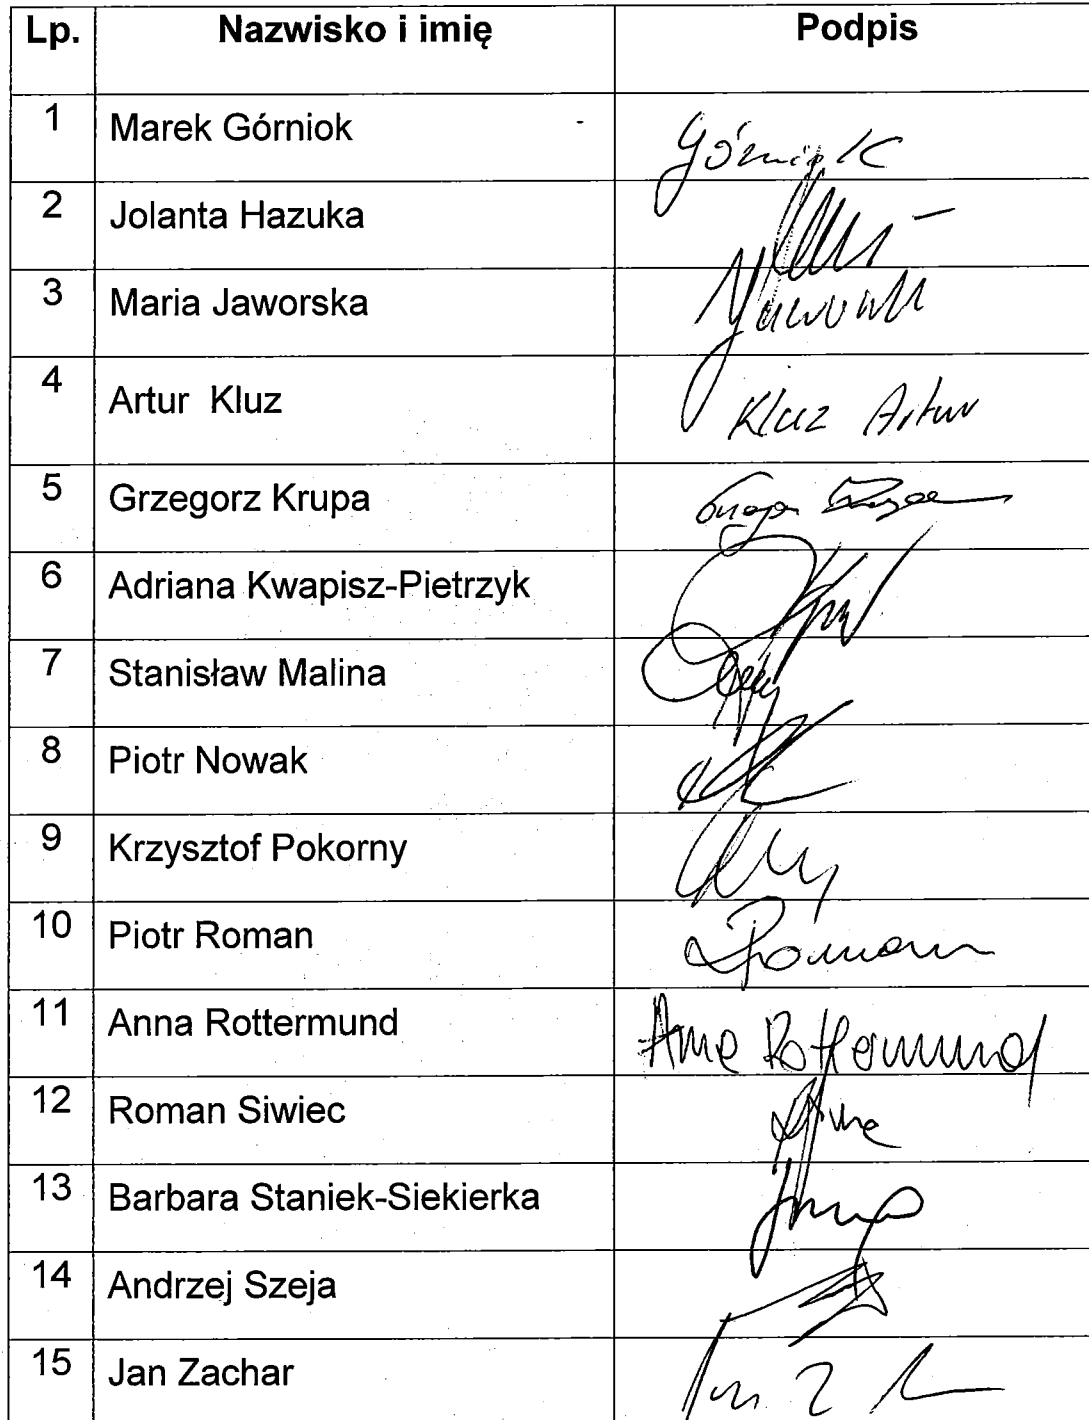 Lp. Nazwisko i imię Podpis
1 Marek Górniok Górniok
2 Jolanta Hazuka
3 Maria Jaworska
4 Artur Kluz Kluz Artur
5 Grzegorz Krupa
6 Adriana Kwapisz-Pietrzyk
7 Stanisław Malina
8 Piotr Nowak
9 Krzysztof Pokorny
10 Piotr Roman Roman
11 Anna Rottermund Anna Rottermund
12 Roman Siwiec
13 Barbara Staniek-Siekierka
14 Andrzej Szeja
15 Jan Zachar